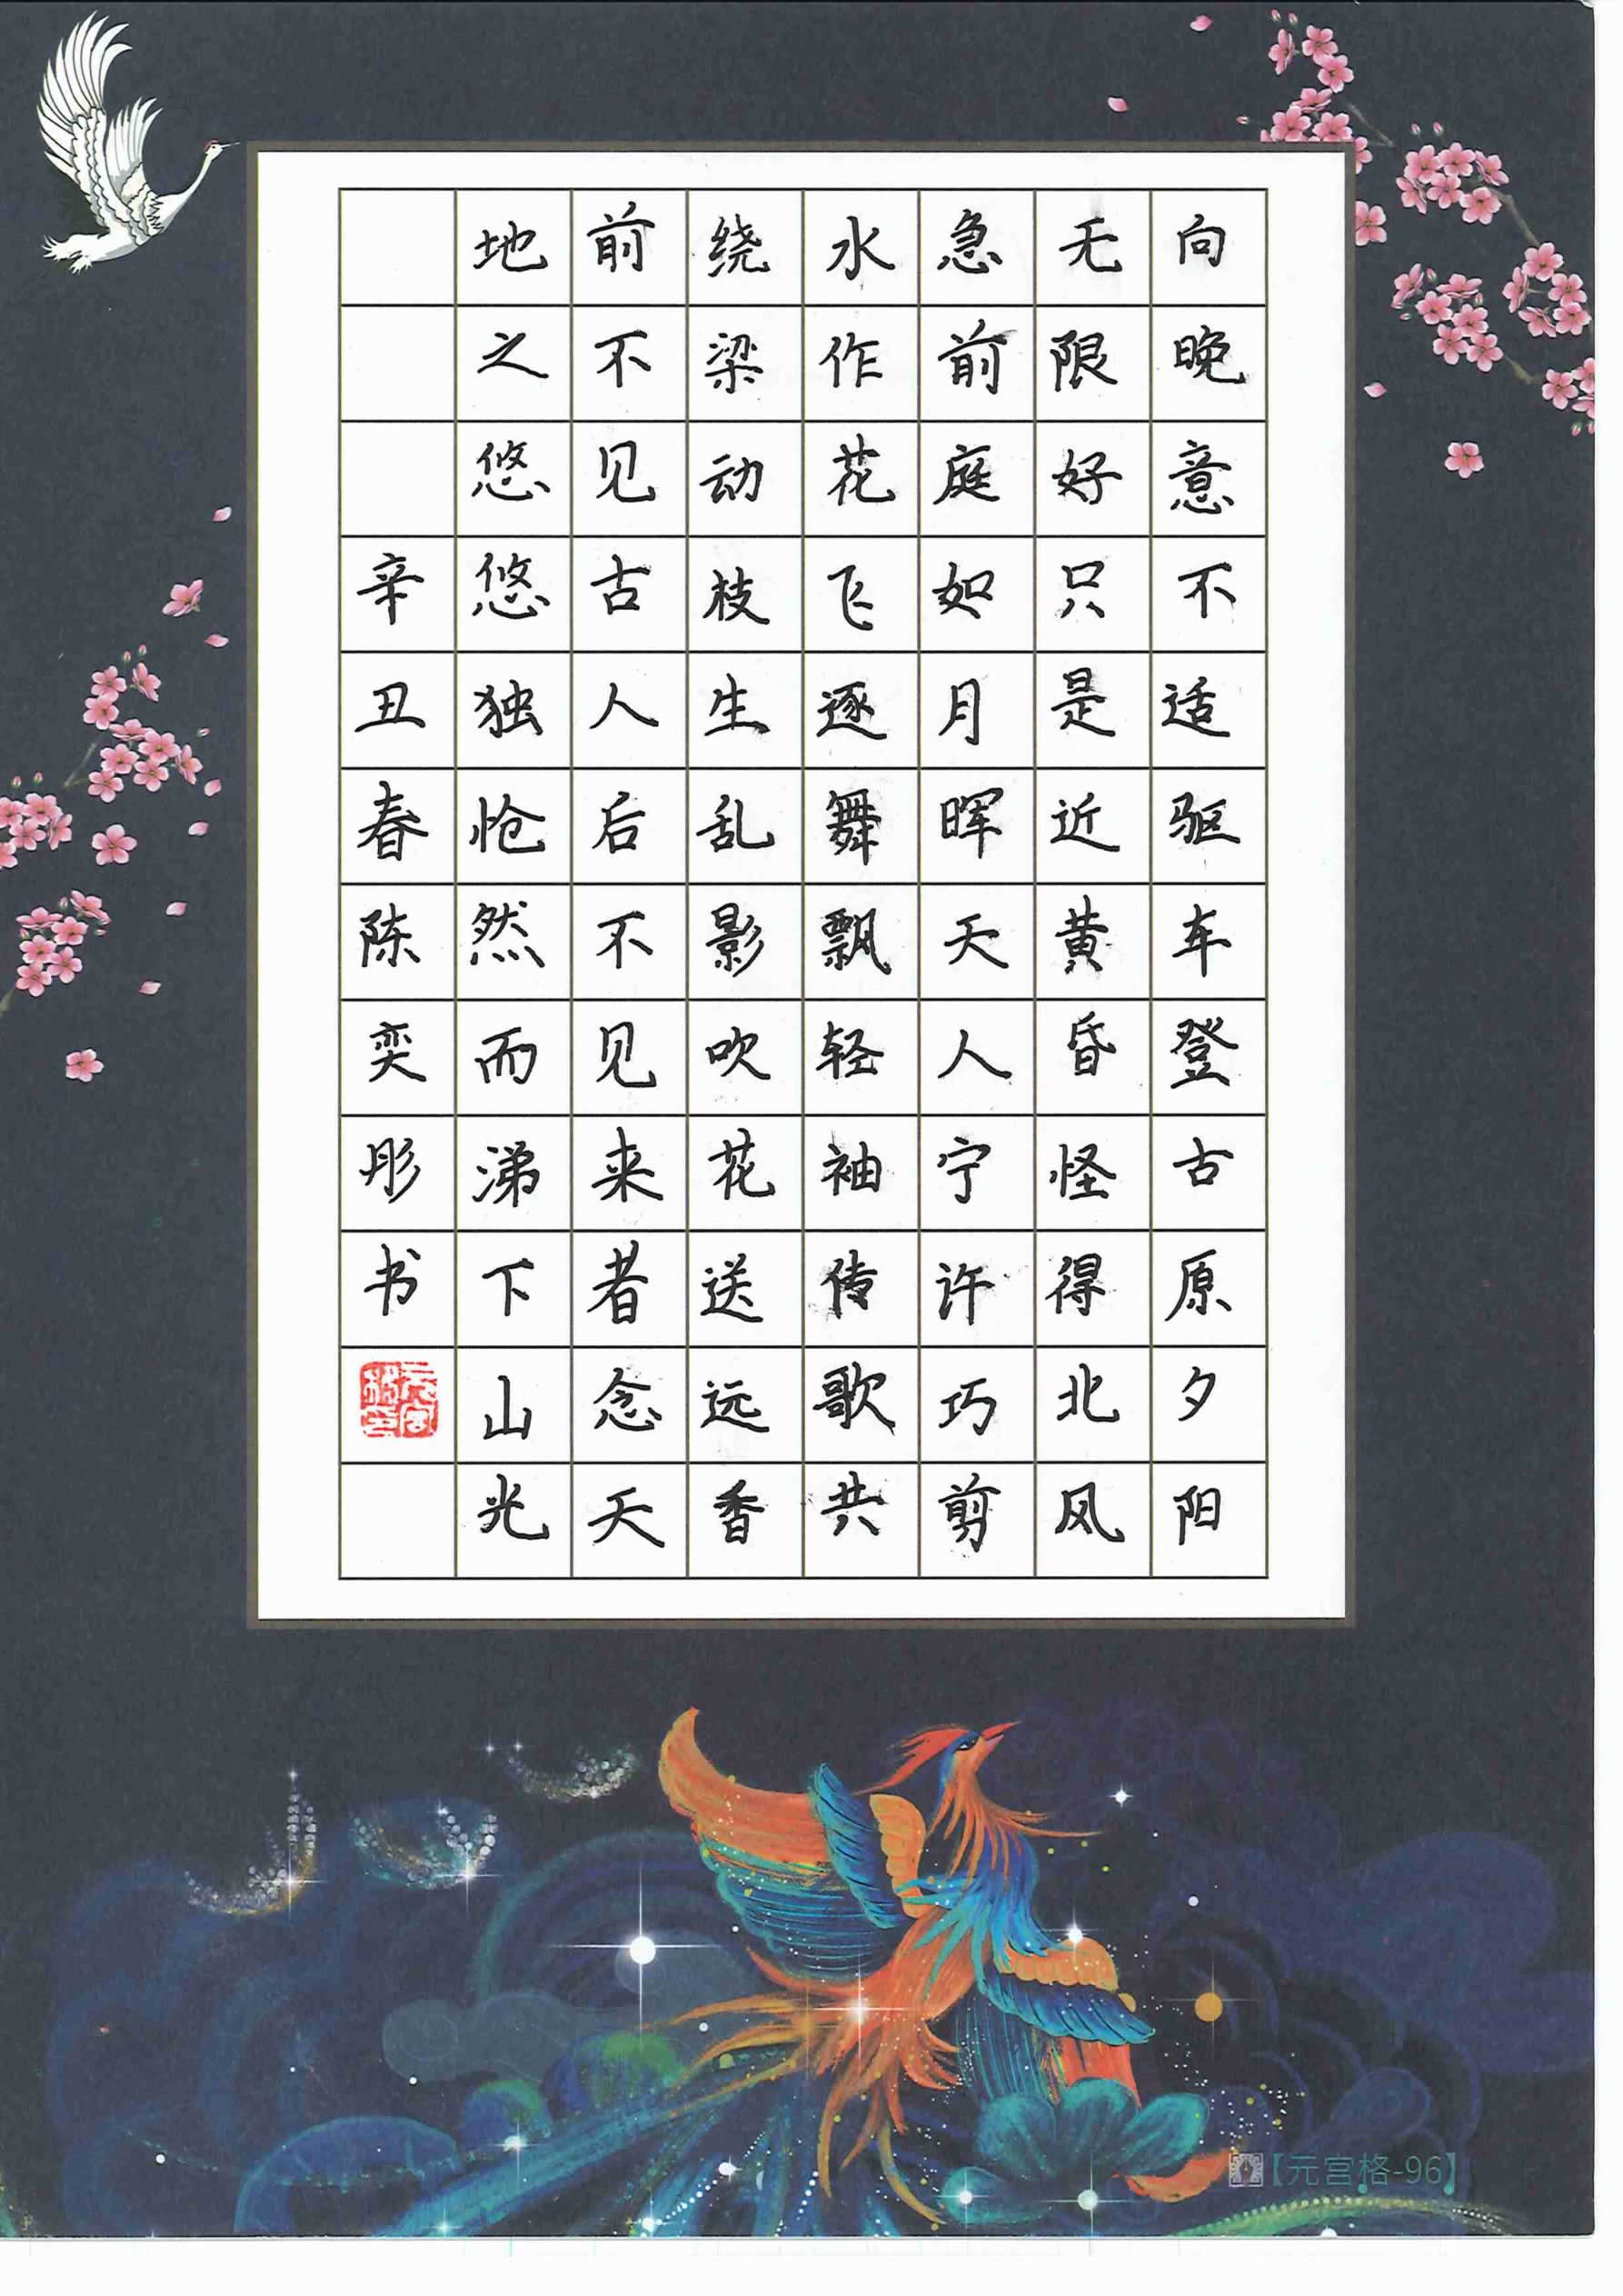 向晚意不适驱车登古原夕阳
无限好只是近黄昏怪得北风
急前庭如月晖天人宁许巧剪
水作花飞逐舞飘轻袖传歌共
绕梁动枝生乱影吹花送远香
前不见古人后不见来者念天
地之悠悠独怆然而涕下山光
辛丑春陈奕彤书
元宫格印
【元宫格-96】